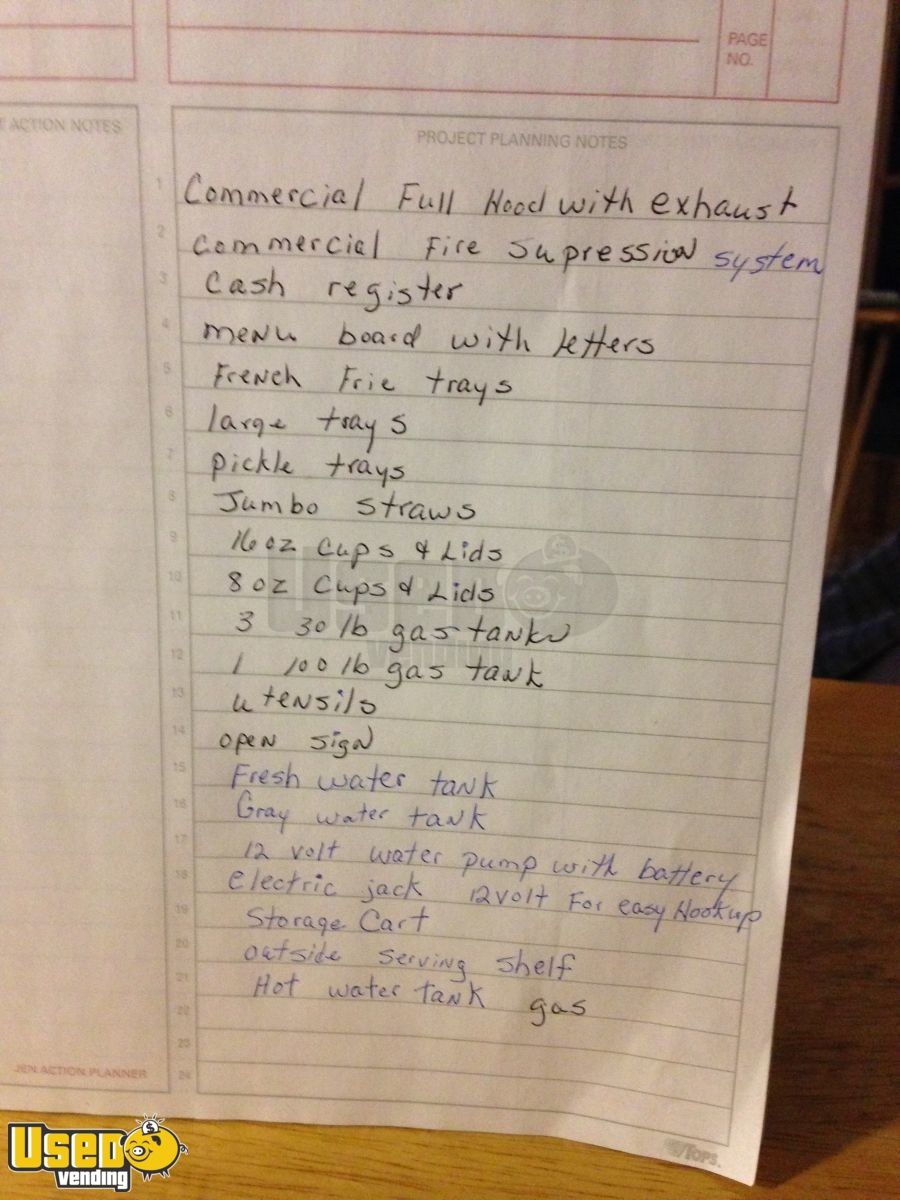 PAGE
NO.
T ACTION NOTES
PROJECT PLANNING NOTES
1 Commercial Full Hood with exhaust
2 Commercial Fire Supression system
3 Cash register
4 menu board with letters
5 French Frie trays
6 large trays
7 pickle trays
8 Jumbo straws
9 16 oz Cups & Lids
10 8 oz Cups & Lids
11 3 30 lb gas tanks
12 1 100 lb gas tank
13 utensils
14 open sign
15 Fresh water tank
16 Gray water tank
17 12 volt water pump with battery
18 electric jack 12 volt For easy Hookup
19 Storage Cart
20 outside serving shelf
21 Hot water tank gas
22
23
24
JEN ACTION PLANNER
TOPS
Used Vending
Used Vending